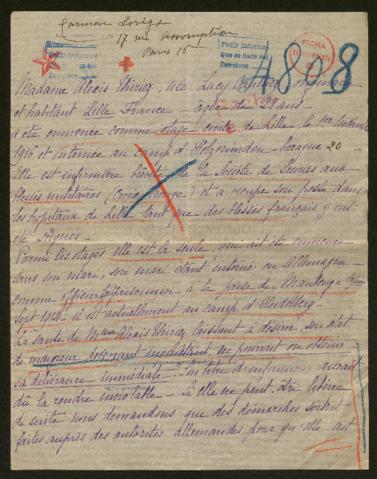 Carmen
17 rue Assomption
Paris 16
Pedir informe
Que se hace así
Devolver
Pedir informe
Que se hace así
Devolver
FICHA
4808
Madame Alexis Thiriez, née Lucy
et habitant Lille France âgée de ans
a été emmenée comme otage de Lille, le 1er Novembre
1916 et internée au camp d'Holzminden baraque 20 -
Elle est infirmière de la Société de Secours aux
Blessés militaires (Croix Rouge) et a occupé son poste dans
les hopitaux de Lille tant que des blessés français y ont
été soignés -
Parmi les otages elle est la seule, qui ait été emmenée
sans son mari, son mari étant interné en Allemagne
comme officier fait prisonnier à la prise de Maubeuge
Sept 1914 - il est actuellement au camp d'Heidelberg -
La santé de Mme Alexis Thiriez laissant à désirer, son état
de maigreur devenant inquiétant, ne pourrait on obtenir
sa délivrance immédiate? Son titre d'infirmière aurait
dû la rendre inviolable - Si elle ne peut être libérée
de suite nous demandons que des démarches soient
faites auprès des autorités allemandes pour qu'elle ait